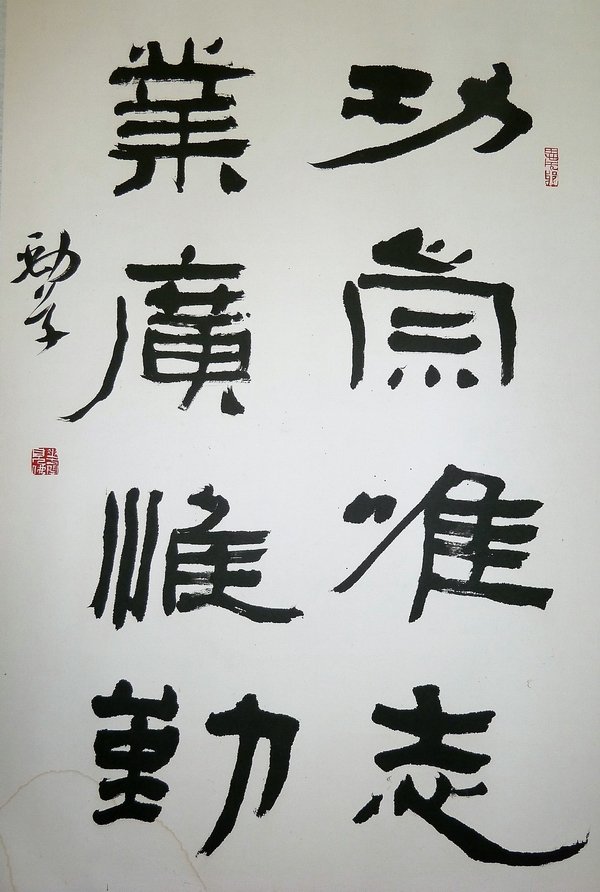 功崇唯志
業廣惟勤